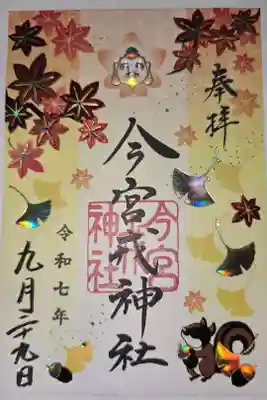 奉拝
今宮戎神社
今宮
神社
令和七年
九月二十九日